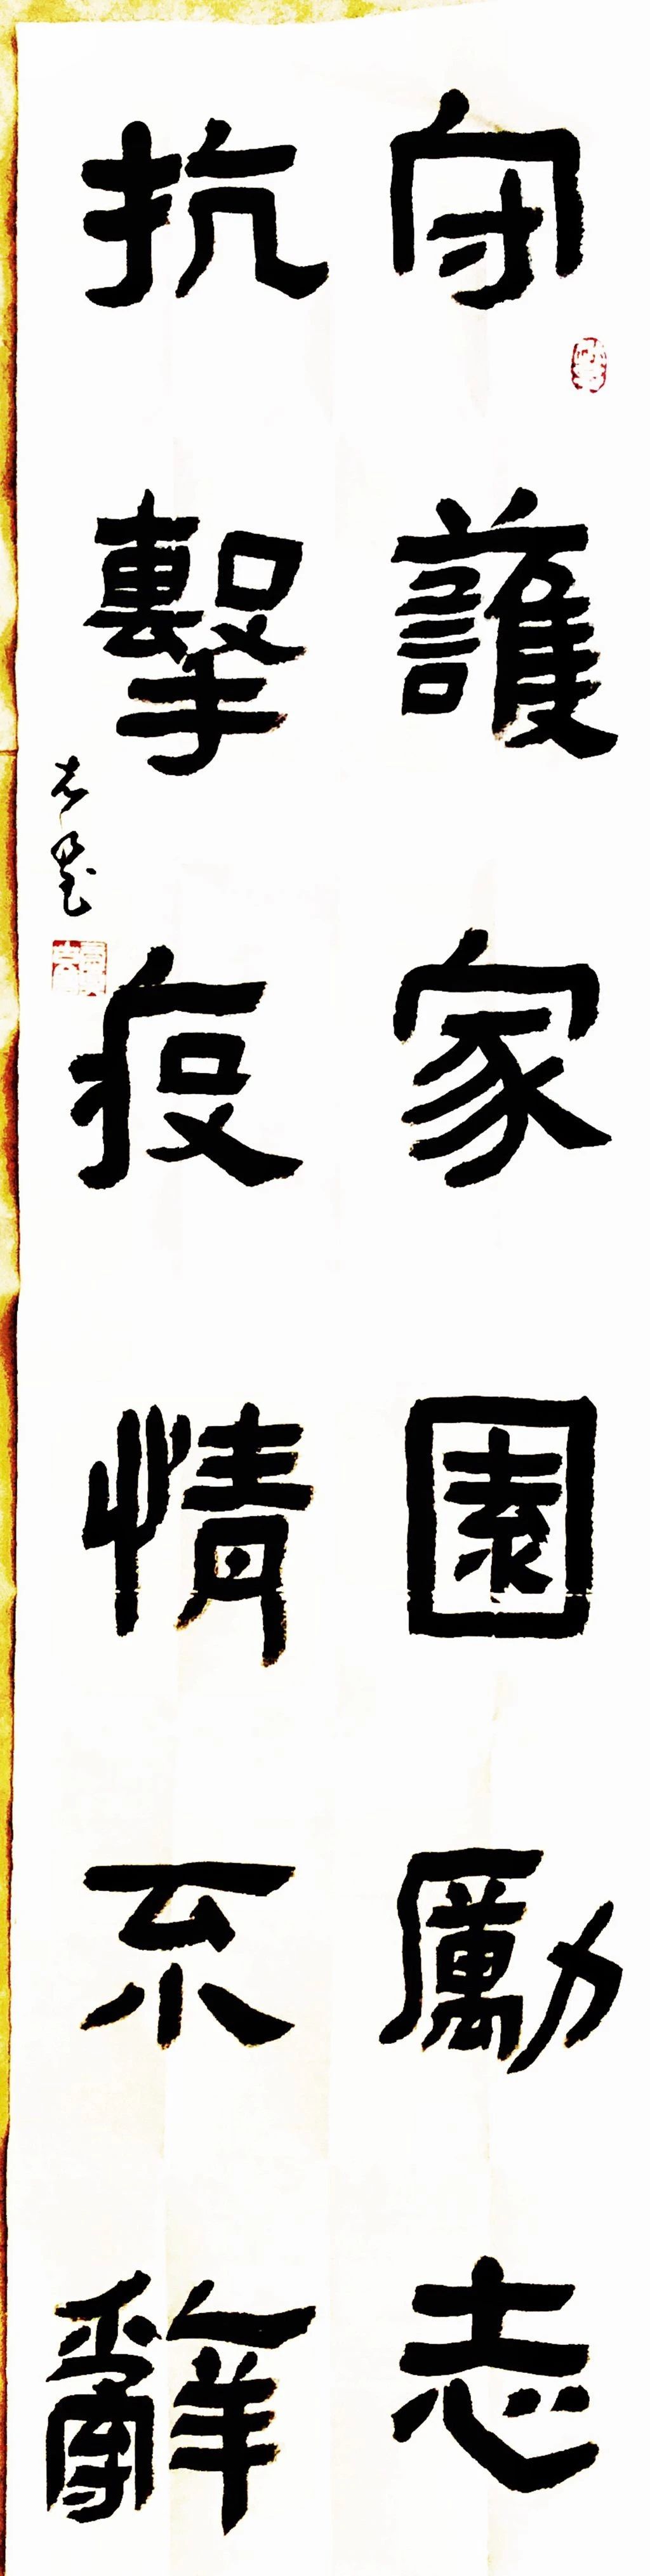 守護家園勵志
抗擊疫情系辭